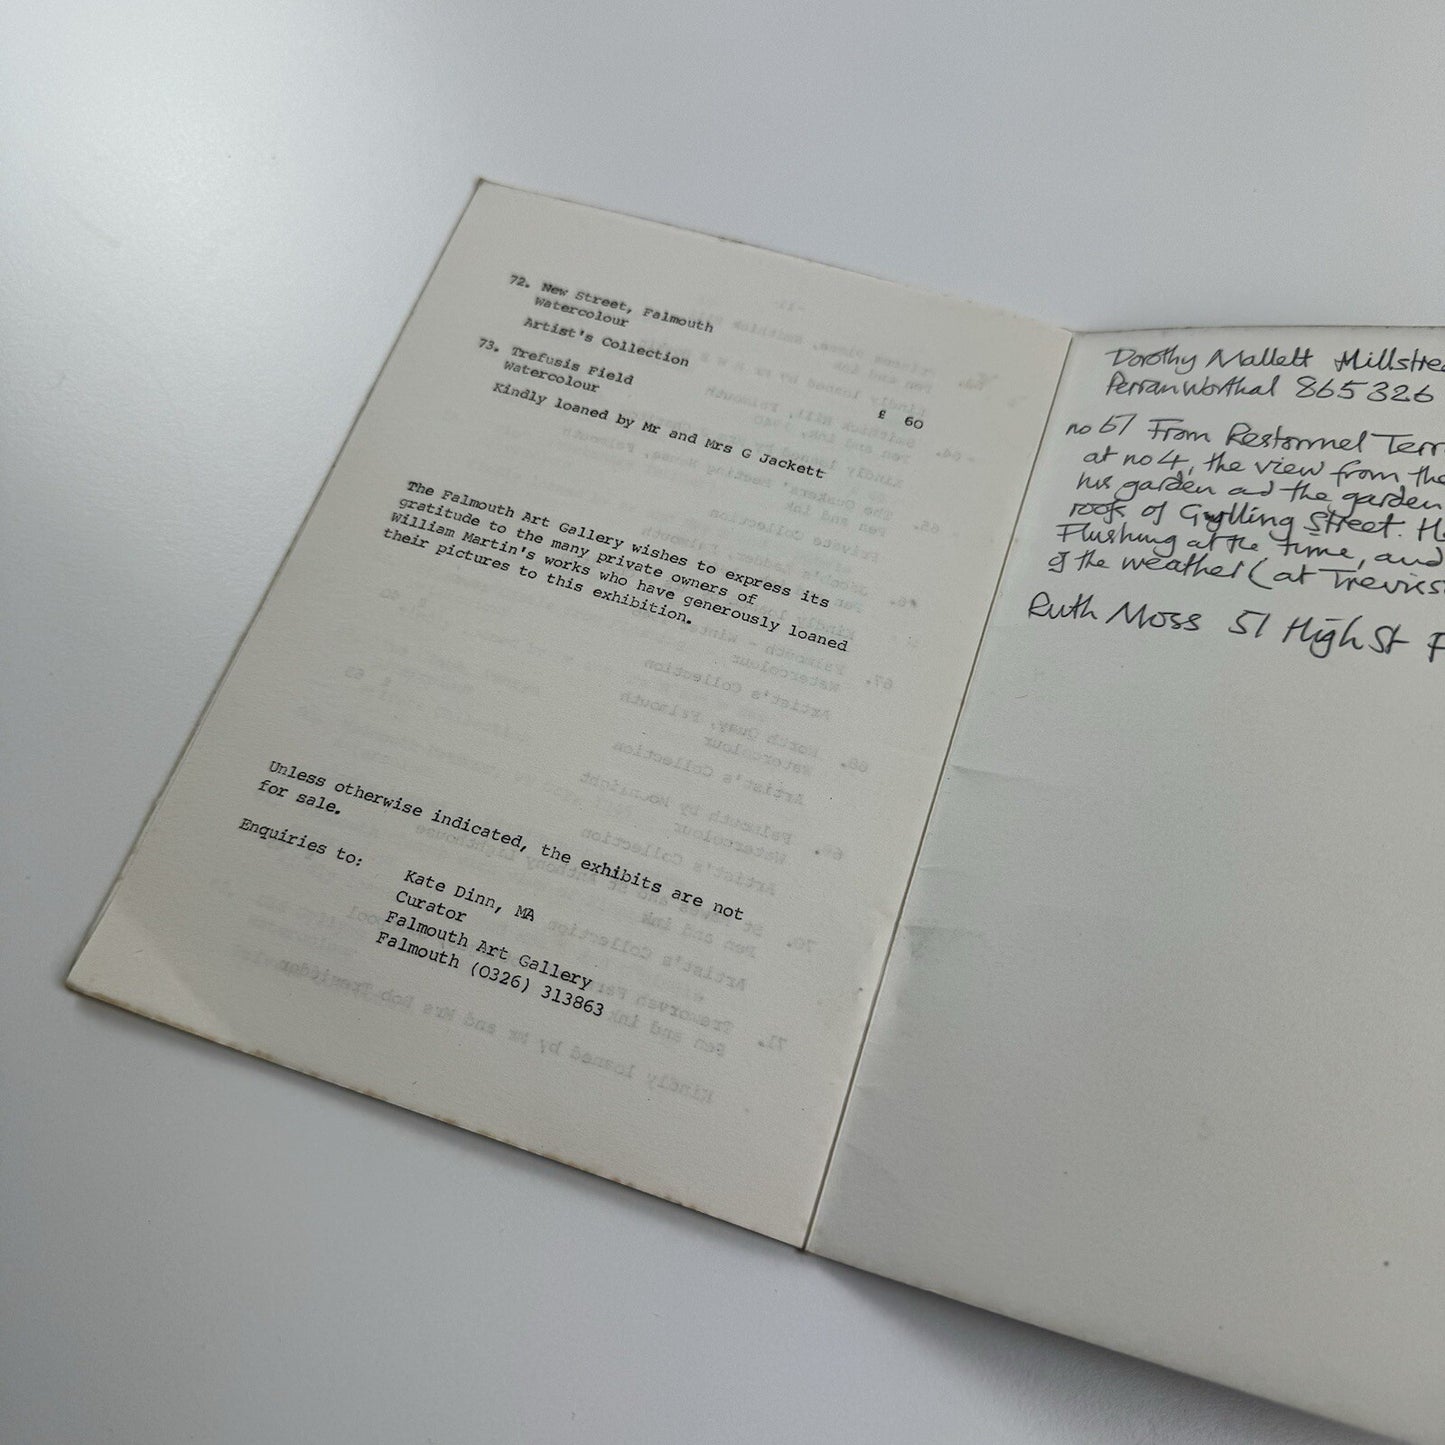 72. New Street, Falmouth
Watercolour
Artist's Collection
73. Trefusis Field
Watercolour
£ 60
Kindly loaned by Mr and Mrs G Jackett
The Falmouth Art Gallery wishes to express its
gratitude to the many private owners of
William Martin's works who have generously loaned
their pictures to this exhibition.
Unless otherwise indicated, the exhibits are not
for sale.
Enquiries to:
Kate Dinn, MA
Curator
Falmouth Art Gallery
Falmouth (0326) 313863
Dorothy Mallett Millstre
Perranworthal 865326
no 67 From Restormel Terr
at no 4, the view from the
his garden and the garden
roofs of Gylling Street. H
Flushing at the time, and
of the weather (at Treviss
Ruth Moss 51 High St F